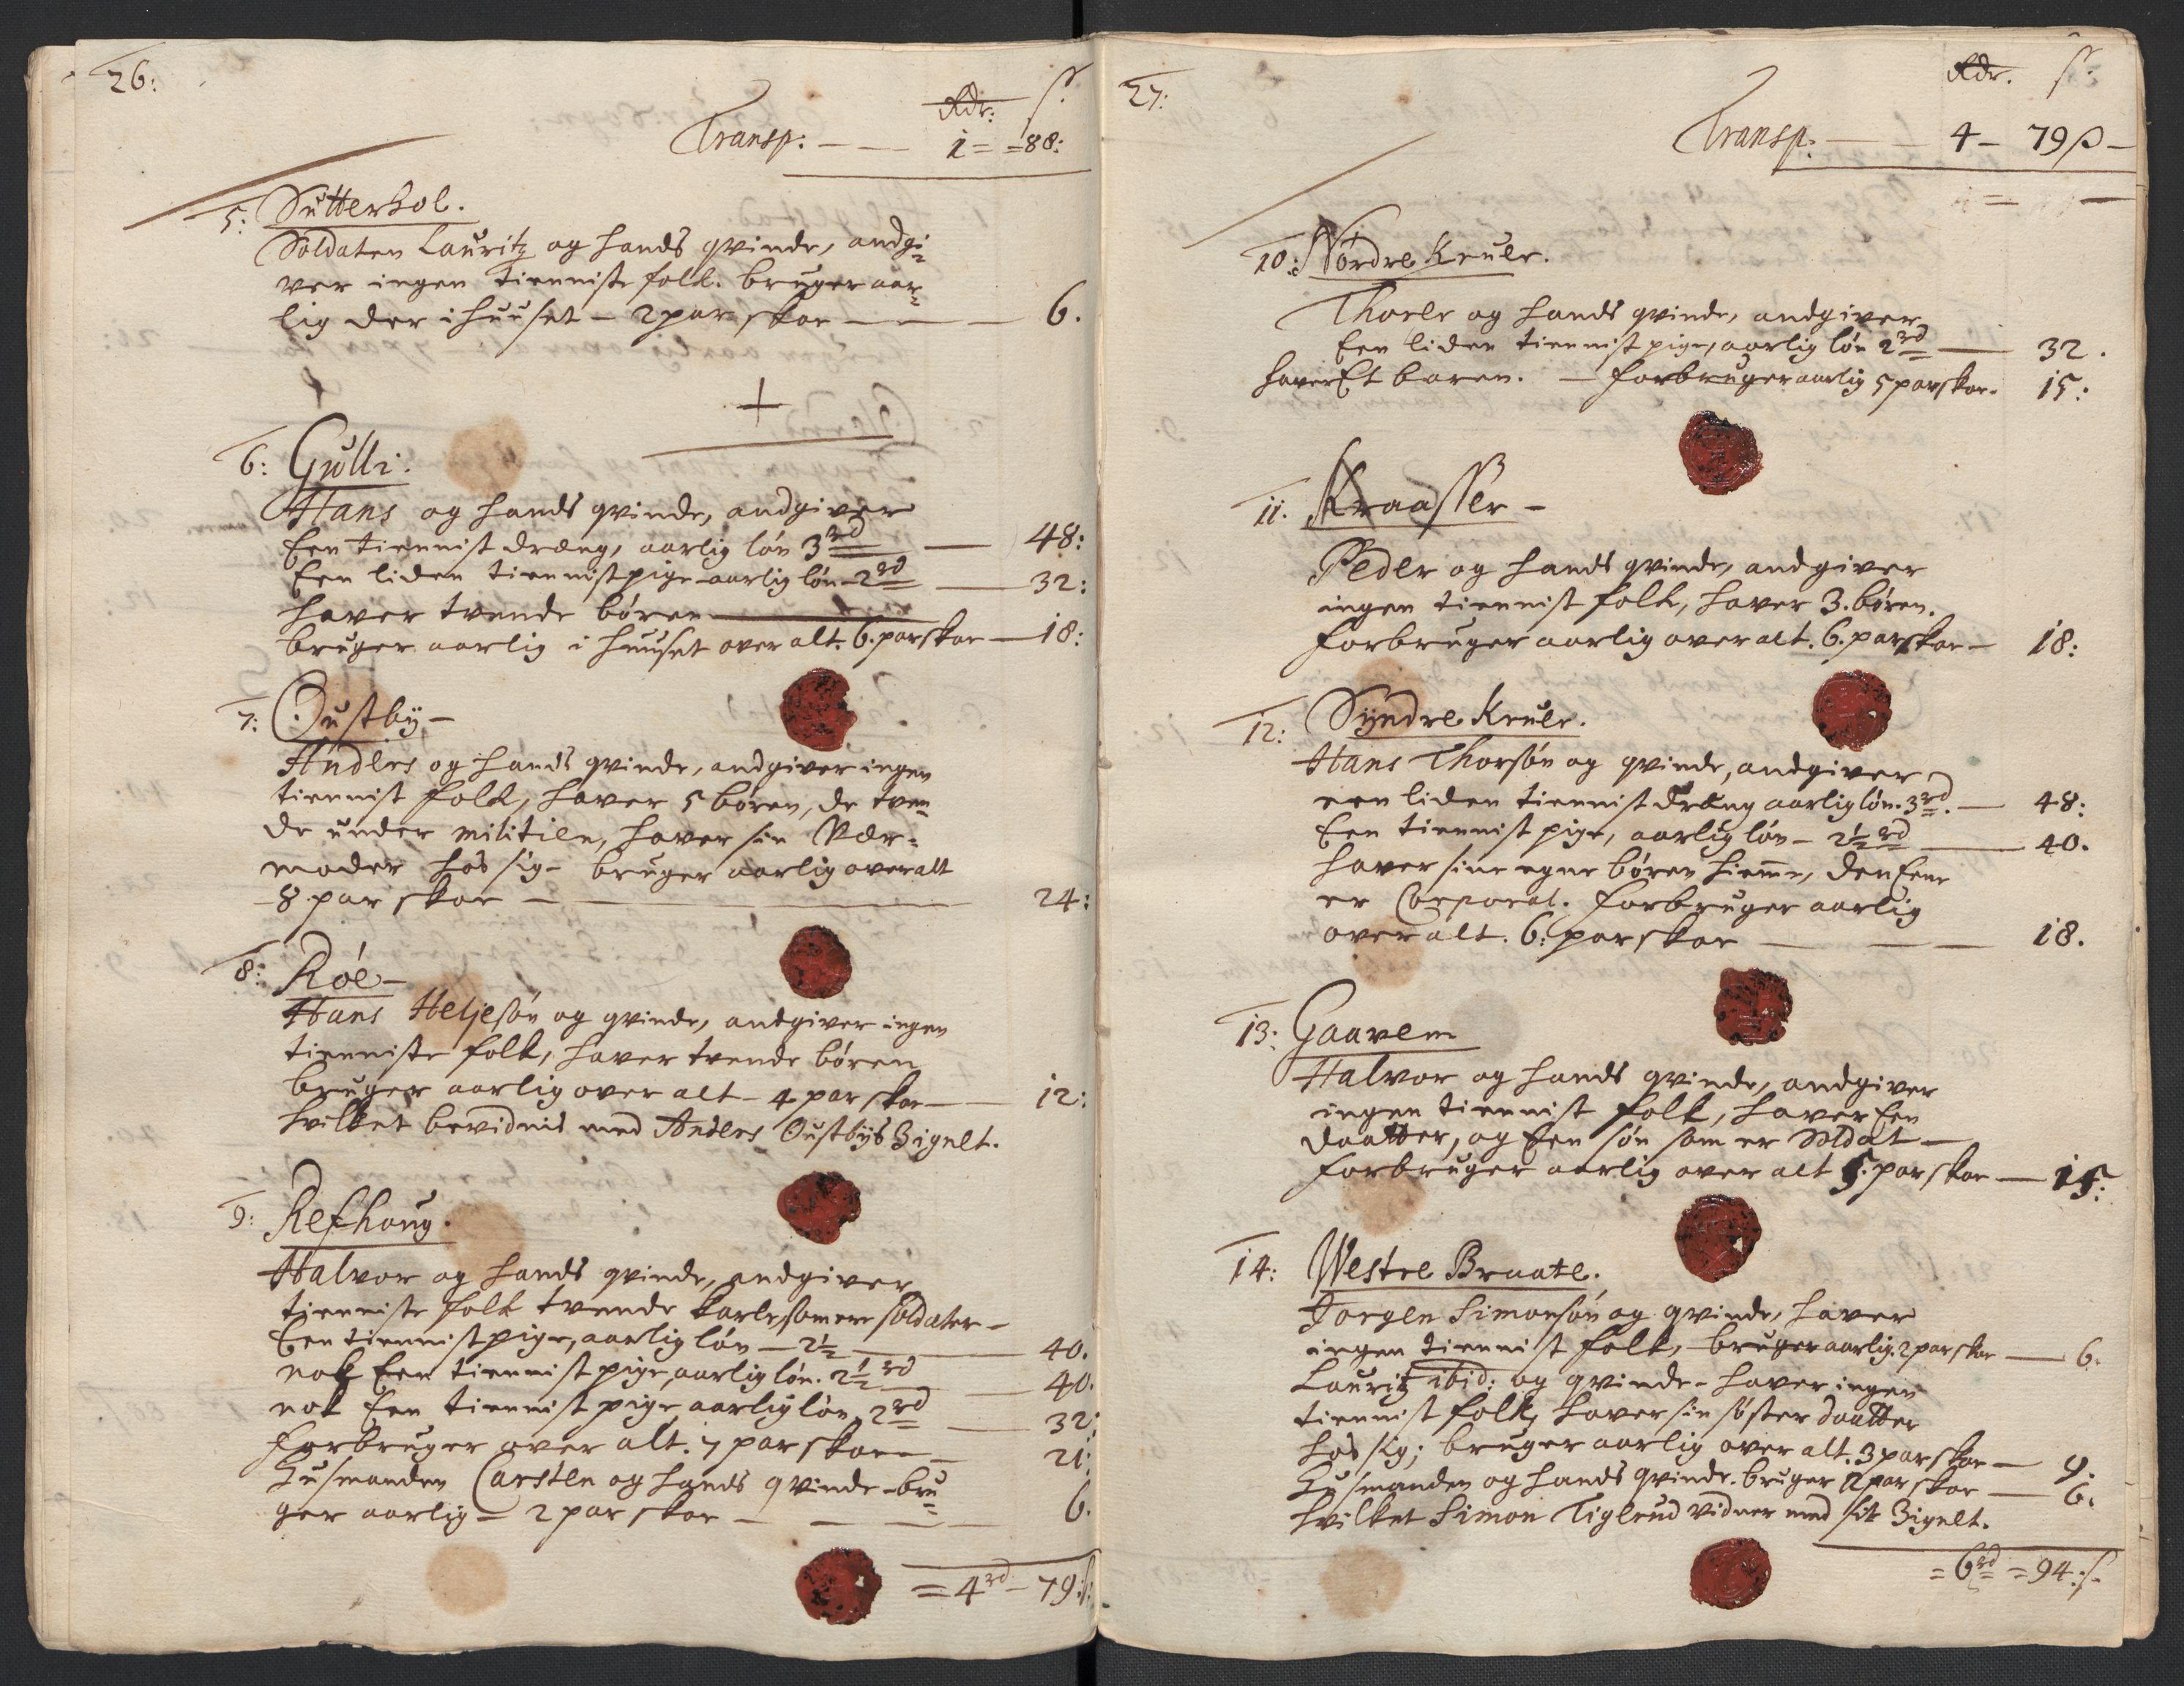 26:
Rdr: ß.
Transp: — — 1 = = 88:
5: Sutterhol.
Soldaten Lauritz og hands qvinde, andgi=
ver ingen tienniste folk. bruger aar=
lig der i huuset – 2 par skoe — — 6.
+
6: Gulli.
Hans og hands qvinde, andgiver
Een tiennist dræng, aarlig lön 3 rd — 48:
Een liden tiennistpige aarlig lön – 2 rd — 32:
haver tvende bören
bruger aarlig i huuset over alt. 6. par skoe — 18:
7: Oustbÿ –
Anders og hands qvinde, andgiver ingen
tiennist folk, haver 5 bören, de tven=
de under militien, haver sin Vær=
moder hos sig – bruger aarlig over alt
– 8 par skoe — 24:
8: Röe –
Hans Heljesön og qvinde, andgiver ingen
tienniste folk, haver tvende bören
bruger aarlig over alt – 4 par skoe — 12:
hvilket bevidnis med Anders Oustbÿs Zignet.
9: Refhoug.
Halvor og hands qvinde, andgiver
tienniste folk tvende karle som ere soldater –
Een tiennistpige, aarlig lön — 2½ — 40.
nok Een tiennist pige, aarlig lön. 2½ rd — 40.
nok Een tiennist pige aarlig lön 2 rd — 32:
forbruger over alt. 7 par skoe — 21:
Husmanden Carsten og hands qvinde – bru=
ger aarlig – 2 par skoe — 6.
= 4 rd – 79:ß:
27:
Rdr. ß.
Transp: — — 4 – 79 ß –
10: Nordre Krule.
Thorer og hands qvinde, andgiver
Een liden tiennist pige, aarlig lön 2 rd — 32.
haver Et baren. — forbruger aarlig 5 par skoe. 15:
11. Kraasser –
Peder og hands qvinde, andgiver
ingen tiennist folk, haver 3. bören.
forbruger aarlig over alt. 6. par skoe – 18:
12: Sÿndre Krule.
Hans Thorsön og qvinde, andgiver
een liden tiennist dræng aarlig lön. 3 rd. — 48:
Een tiennist pige, aarlig lön – 2½ rd — 40.
haver sine egne bören hieme, den Eene
er Corporal. forbruger aarlig
over alt. 6: par skoe — 18.
13: Gaarem
Halvor og hands qvinde, andgiver
ingen tiennist folk, haver Een
daatter, og Een sön som er Soldat —
forbruger aarlig over alt 5. par skoe — 15:
14: Westre Braate.
Jorgen Simonsön og qvinde, haver
ingen tiennist folk, – bruger aarlig. 2 par skoe — 6.
Lauritz ibid: og qvinde – haver ingen
tiennist folk, haver sin söster daatter
hos sig; bruger aarlig over alt. 3 par skoe — 9.
Husmanden og hands qvinde. bruger 2 par skoe — 6.
hvilket Simon Tiglrud vidner med sit Zignet.
= 6 rd = 94:ß